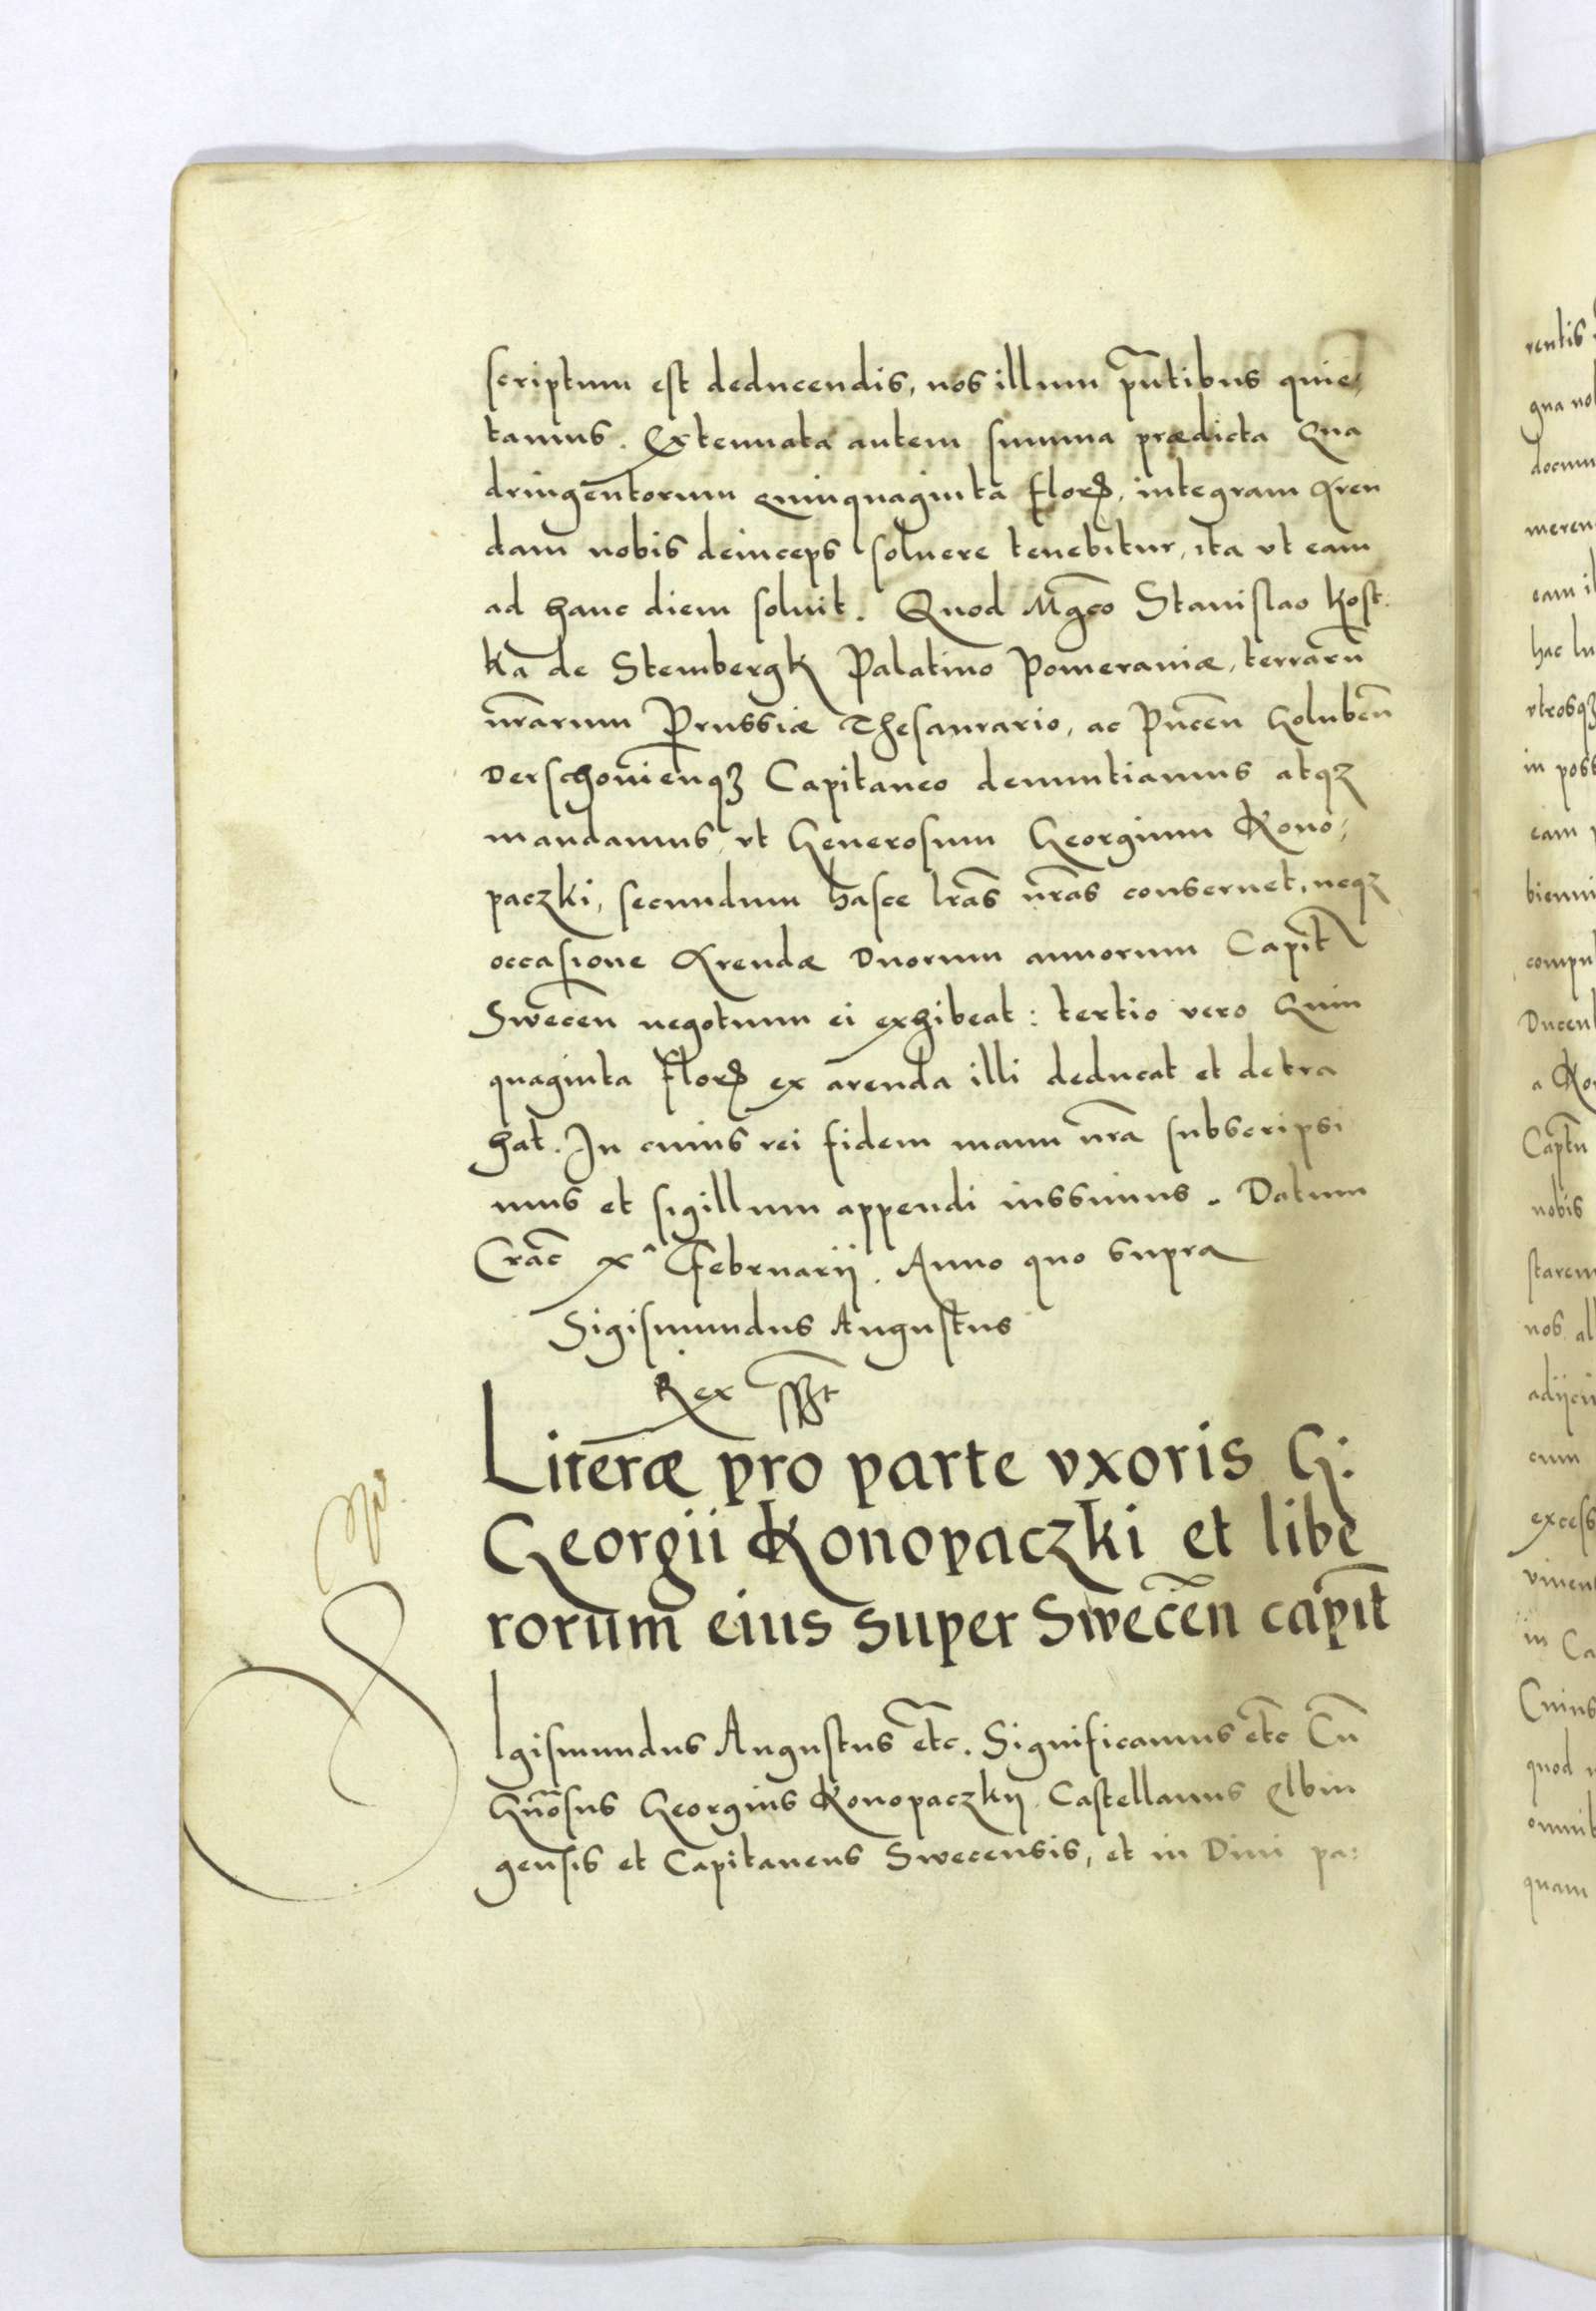 scriptum est deducendis, nos illum pñtibus quie,
tamus. Extenuata autem summa prædicta Qua
dringentorum quinquaginta flor, integram Aren
dam nobis deinceps soluere tenebitur, ita vt eam
ad hanc diem soluit. Quod Mgco Stanislao Kost:
ka de Stembergk Palatino Pomeraniæ, terrarū
nr̄arum Prussiæ Thesaurario, ac Pucēn Golubēn
Derschouieñqz Capitaneo denuntiamus atqz
mandamus, vt Generosum Georgium Kono,
paczki, secundum hasce lr̄as nr̄as conseruet, neqz
occasione Arendæ Duorum annorum Capit̄
Swecēn negotium ei exhibeat: tertio vero Quin
quaginta flor ex arenda illi deducat et detra
hat. In cuius rei fidem manu nr̄a subscripsi
mus et sigillum appendi iussimus. Datum
Crac̄ x^ Februarij. Anno quo supra
Sigismundus Augustus
Rex sst
Literæ pro parte vxoris G:
Georgii Konopaczki et libe
rorum eius super Swecēn capit̄
Igismundus Augustus etc. Significamus etc Cū
Gn̄osus Georgius Konopaczkij Castellanus Elbin
gensis et Capitaneus Swecensis, et in Diui pa:
rentis
gna no
docum
meren
eam il
hac lu
vtrosqz
in poss
eam
bienni
compu
Ducent
a Ko
Captn
nobis
starem
nos al
adijci
cum
excess
viuen
in Ca
Cuius
quod
omnib
quam